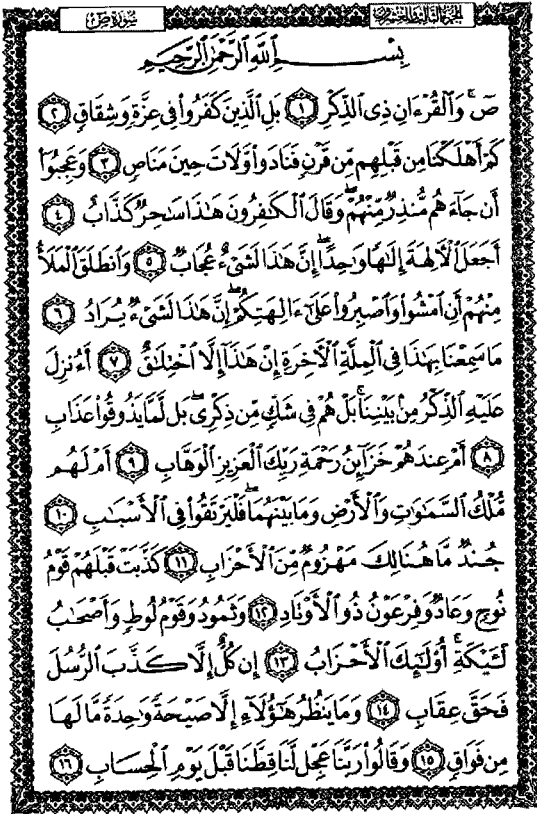 الجزء الثالث والعشرون
سورة ص
بِسْمِ ٱللَّهِ ٱلرَّحْمَٰنِ ٱلرَّحِيمِ
صٓ ۚ وَٱلْقُرْءَانِ ذِى ٱلذِّكْرِ ١ بَلِ ٱلَّذِينَ كَفَرُوا۟ فِى عِزَّةٍ وَشِقَاقٍ ٢
كَمْ أَهْلَكْنَا مِن قَبْلِهِم مِّن قَرْنٍ فَنَادَوا۟ وَّلَاتَ حِينَ مَنَاصٍ ٣ وَعَجِبُوٓا۟
أَن جَآءَهُم مُّنذِرٌ مِّنْهُمْ ۖ وَقَالَ ٱلْكَٰفِرُونَ هَٰذَا سَٰحِرٌ كَذَّابٌ ٤
أَجَعَلَ ٱلْءَالِهَةَ إِلَٰهًا وَٰحِدًا ۖ إِنَّ هَٰذَا لَشَىْءٌ عُجَابٌ ٥ وَٱنطَلَقَ ٱلْمَلَأُ
مِنْهُمْ أَنِ ٱمْشُوا۟ وَٱصْبِرُوا۟ عَلَىٰٓ ءَالِهَتِكُمْ ۖ إِنَّ هَٰذَا لَشَىْءٌ يُرَادُ ٦
مَا سَمِعْنَا بِهَٰذَا فِى ٱلْمِلَّةِ ٱلْءَاخِرَةِ إِنْ هَٰذَآ إِلَّا ٱخْتِلَٰقٌ ٧ أَءُنزِلَ
عَلَيْهِ ٱلذِّكْرُ مِنۢ بَيْنِنَا ۚ بَلْ هُمْ فِى شَكٍّ مِّن ذِكْرِى ۖ بَل لَّمَّا يَذُوقُوا۟ عَذَابِ
٨ أَمْ عِندَهُمْ خَزَآئِنُ رَحْمَةِ رَبِّكَ ٱلْعَزِيزِ ٱلْوَهَّابِ ٩ أَمْ لَهُم
مُّلْكُ ٱلسَّمَٰوَٰتِ وَٱلْأَرْضِ وَمَا بَيْنَهُمَا ۖ فَلْيَرْتَقُوا۟ فِى ٱلْأَسْبَٰبِ ١٠
جُندٌ مَّا هُنَالِكَ مَهْزُومٌ مِّنَ ٱلْأَحْزَابِ ١١ كَذَّبَتْ قَبْلَهُمْ قَوْمُ
نُوحٍ وَعَادٌ وَفِرْعَوْنُ ذُو ٱلْأَوْتَادِ ١٢ وَثَمُودُ وَقَوْمُ لُوطٍ وَأَصْحَٰبُ
لْـَٔيْكَةِ ۚ أُو۟لَٰٓئِكَ ٱلْأَحْزَابُ ١٣ إِن كُلٌّ إِلَّا كَذَّبَ ٱلرُّسُلَ
فَحَقَّ عِقَابِ ١٤ وَمَا يَنظُرُ هَٰٓؤُلَآءِ إِلَّا صَيْحَةً وَٰحِدَةً مَّا لَهَا
مِن فَوَاقٍ ١٥ وَقَالُوا۟ رَبَّنَا عَجِّل لَّنَا قِطَّنَا قَبْلَ يَوْمِ ٱلْحِسَابِ ١٦